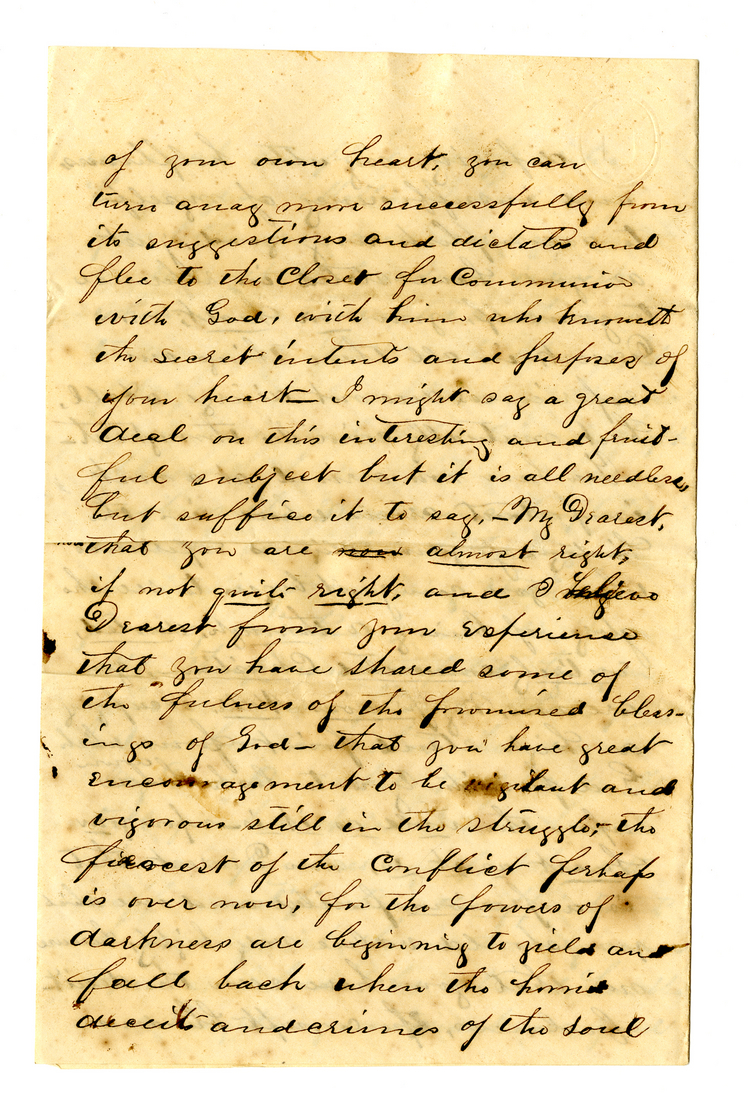 of your own heart, you can
turn away more successfully from
its suggestions and dictates and
flee to the Closet for Communion
with God, with him who knoweth
the secret intents and purposes of
your heart— I might say a great
deal on this interesting and fruit-
ful subject but it is all needless,
but suffice it to say,—My Dearest,
that you are now almost right,
if not quite right, and I believe
Dearest from your experience
that you have shared some of
the fulness of the promised bless-
ings of God— that you have great
encouragement to be vigilant and
vigorous still in the struggle;— the
fiercest of the Conflict perhaps
is over now, for the powers of
darkness are beginning to yield and
fall back when the horrid
deceits and crimes of the soul